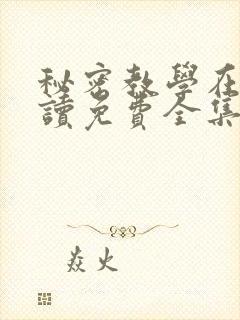 秘密教學在
讀免費全集
焱火